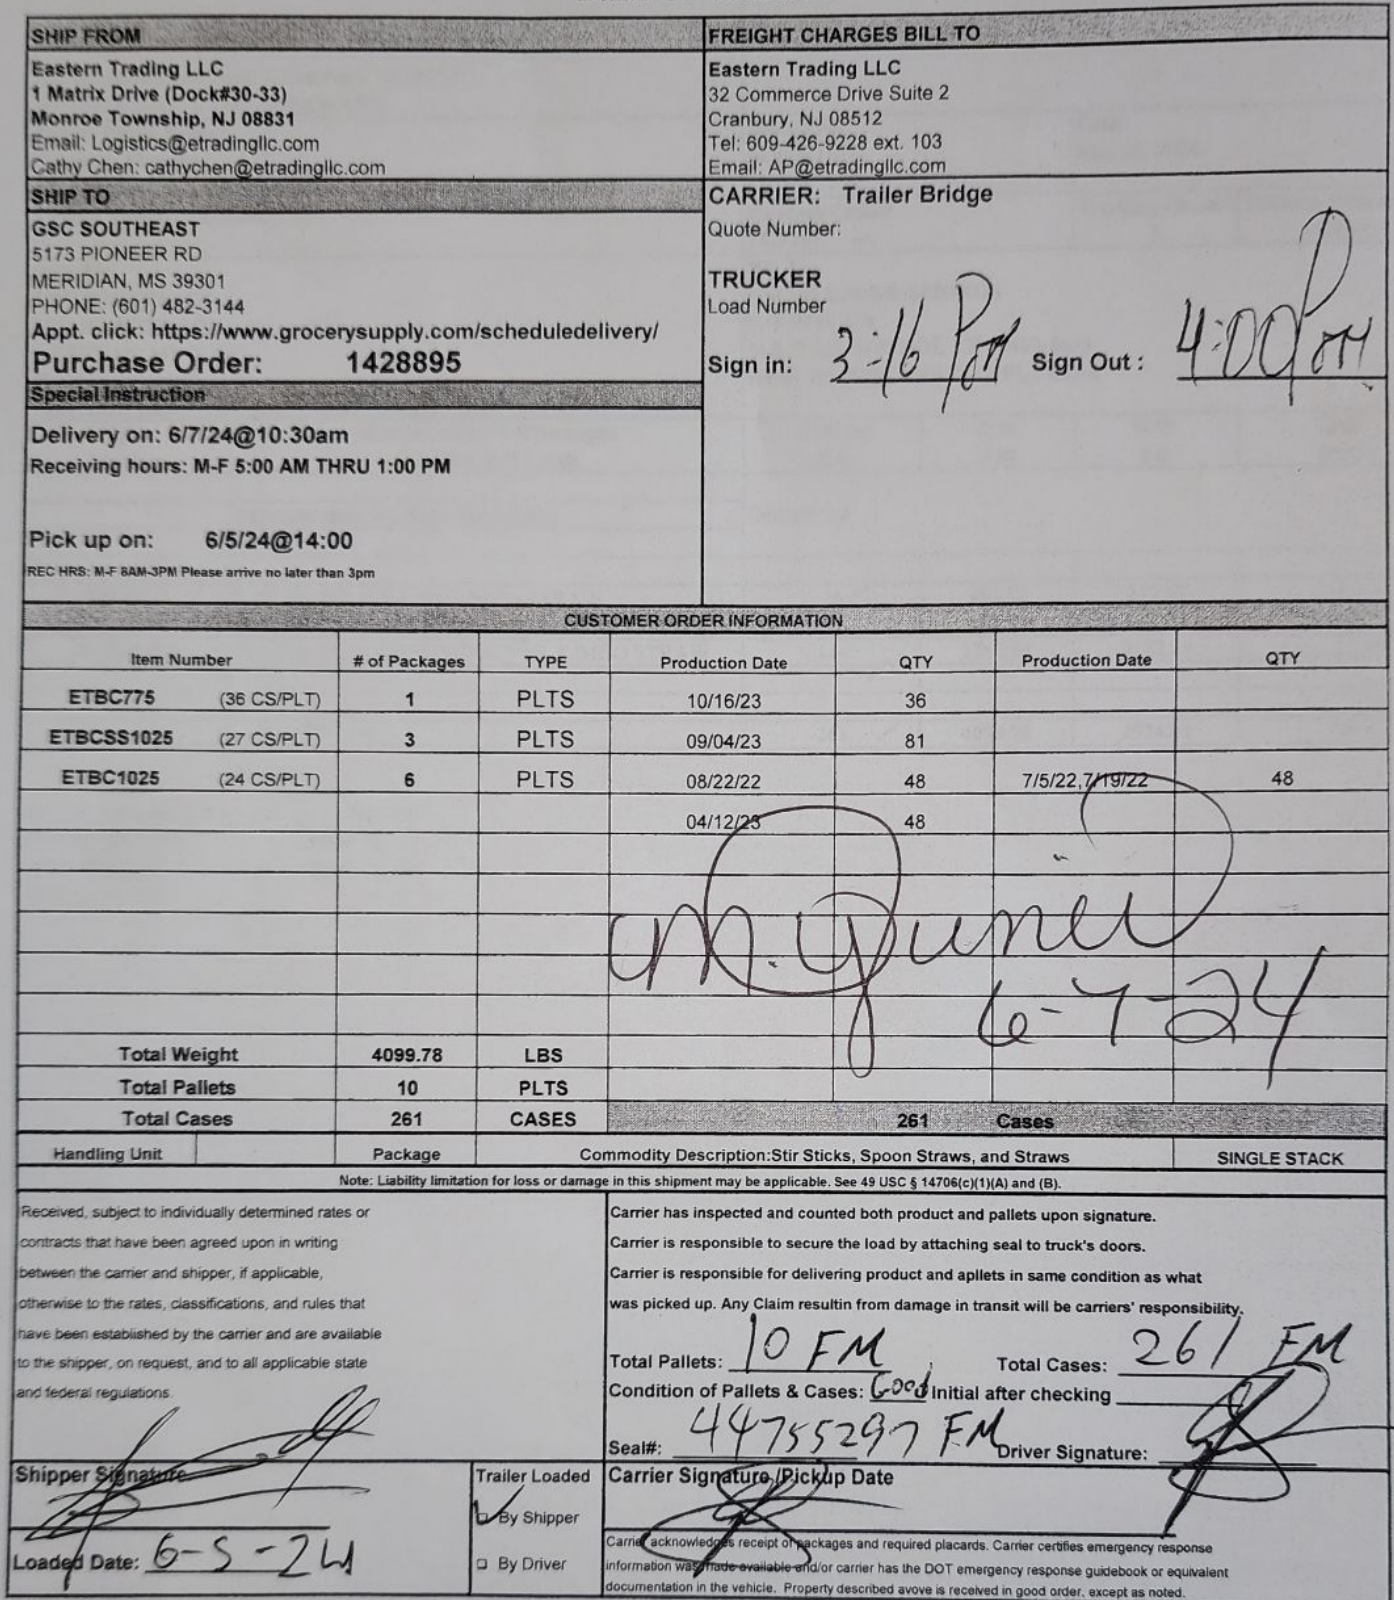 SHIP FROM
Eastern Trading LLC
1 Matrix Drive (Dock#30-33)
Monroe Township, NJ 08831
Email: Logistics@etradingllc.com
Cathy Chen: cathychen@etradingllc.com
FREIGHT CHARGES BILL TO
Eastern Trading LLC
32 Commerce Drive Suite 2
Cranbury, NJ 08512
Tel: 609-426-9228 ext. 103
Email: AP@etradingllc.com
SHIP TO
GSC SOUTHEAST
5173 PIONEER RD
MERIDIAN, MS 39301
PHONE: (601) 482-3144
Appt. click: https://www.grocerysupply.com/scheduledelivery/
Purchase Order: 1428895
CARRIER: Trailer Bridge
Quote Number:
TRUCKER
Load Number
Sign in: 3:16 Pm Sign Out : 4:00 Pm
Special Instruction
Delivery on: 6/7/24@10:30am
Receiving hours: M-F 5:00 AM THRU 1:00 PM
Pick up on: 6/5/24@14:00
REC HRS: M-F 8AM-3PM Please arrive no later than 3pm
CUSTOMER ORDER INFORMATION
Item Number # of Packages TYPE Production Date QTY Production Date QTY
ETBC775 (36 CS/PLT) 1 PLTS 10/16/23 36
ETBCSS1025 (27 CS/PLT) 3 PLTS 09/04/23 81
ETBC1025 (24 CS/PLT) 6 PLTS 08/22/22 48 7/5/22,7/19/22 48
04/12/23 48
6-7-24
Total Weight 4099.78 LBS
Total Pallets 10 PLTS
Total Cases 261 CASES 261 Cases
Handling Unit Package Commodity Description:Stir Sticks, Spoon Straws, and Straws SINGLE STACK
Note: Liability limitation for loss or damage in this shipment may be applicable. See 49 USC § 14706(c)(1)(A) and (B).
Received, subject to individually determined rates or
contracts that have been agreed upon in writing
between the carrier and shipper, if applicable,
otherwise to the rates, classifications, and rules that
have been established by the carrier and are available
to the shipper, on request, and to all applicable state
and federal regulations.
Carrier has inspected and counted both product and pallets upon signature.
Carrier is responsible to secure the load by attaching seal to truck's doors.
Carrier is responsible for delivering product and apllets in same condition as what
was picked up. Any Claim resultin from damage in transit will be carriers' responsibility.
Total Pallets: 10 FM Total Cases: 261 FM
Condition of Pallets & Cases: Good Initial after checking
Seal#: 44755297 FM Driver Signature:
Shipper Signature
Loaded Date: 6-5-24
Trailer Loaded
By Shipper
By Driver
Carrier Signature /Pickup Date
Carrier acknowledges receipt of packages and required placards. Carrier certifies emergency response
information was made available and/or carrier has the DOT emergency response guidebook or equivalent
documentation in the vehicle. Property described avove is received in good order, except as noted.